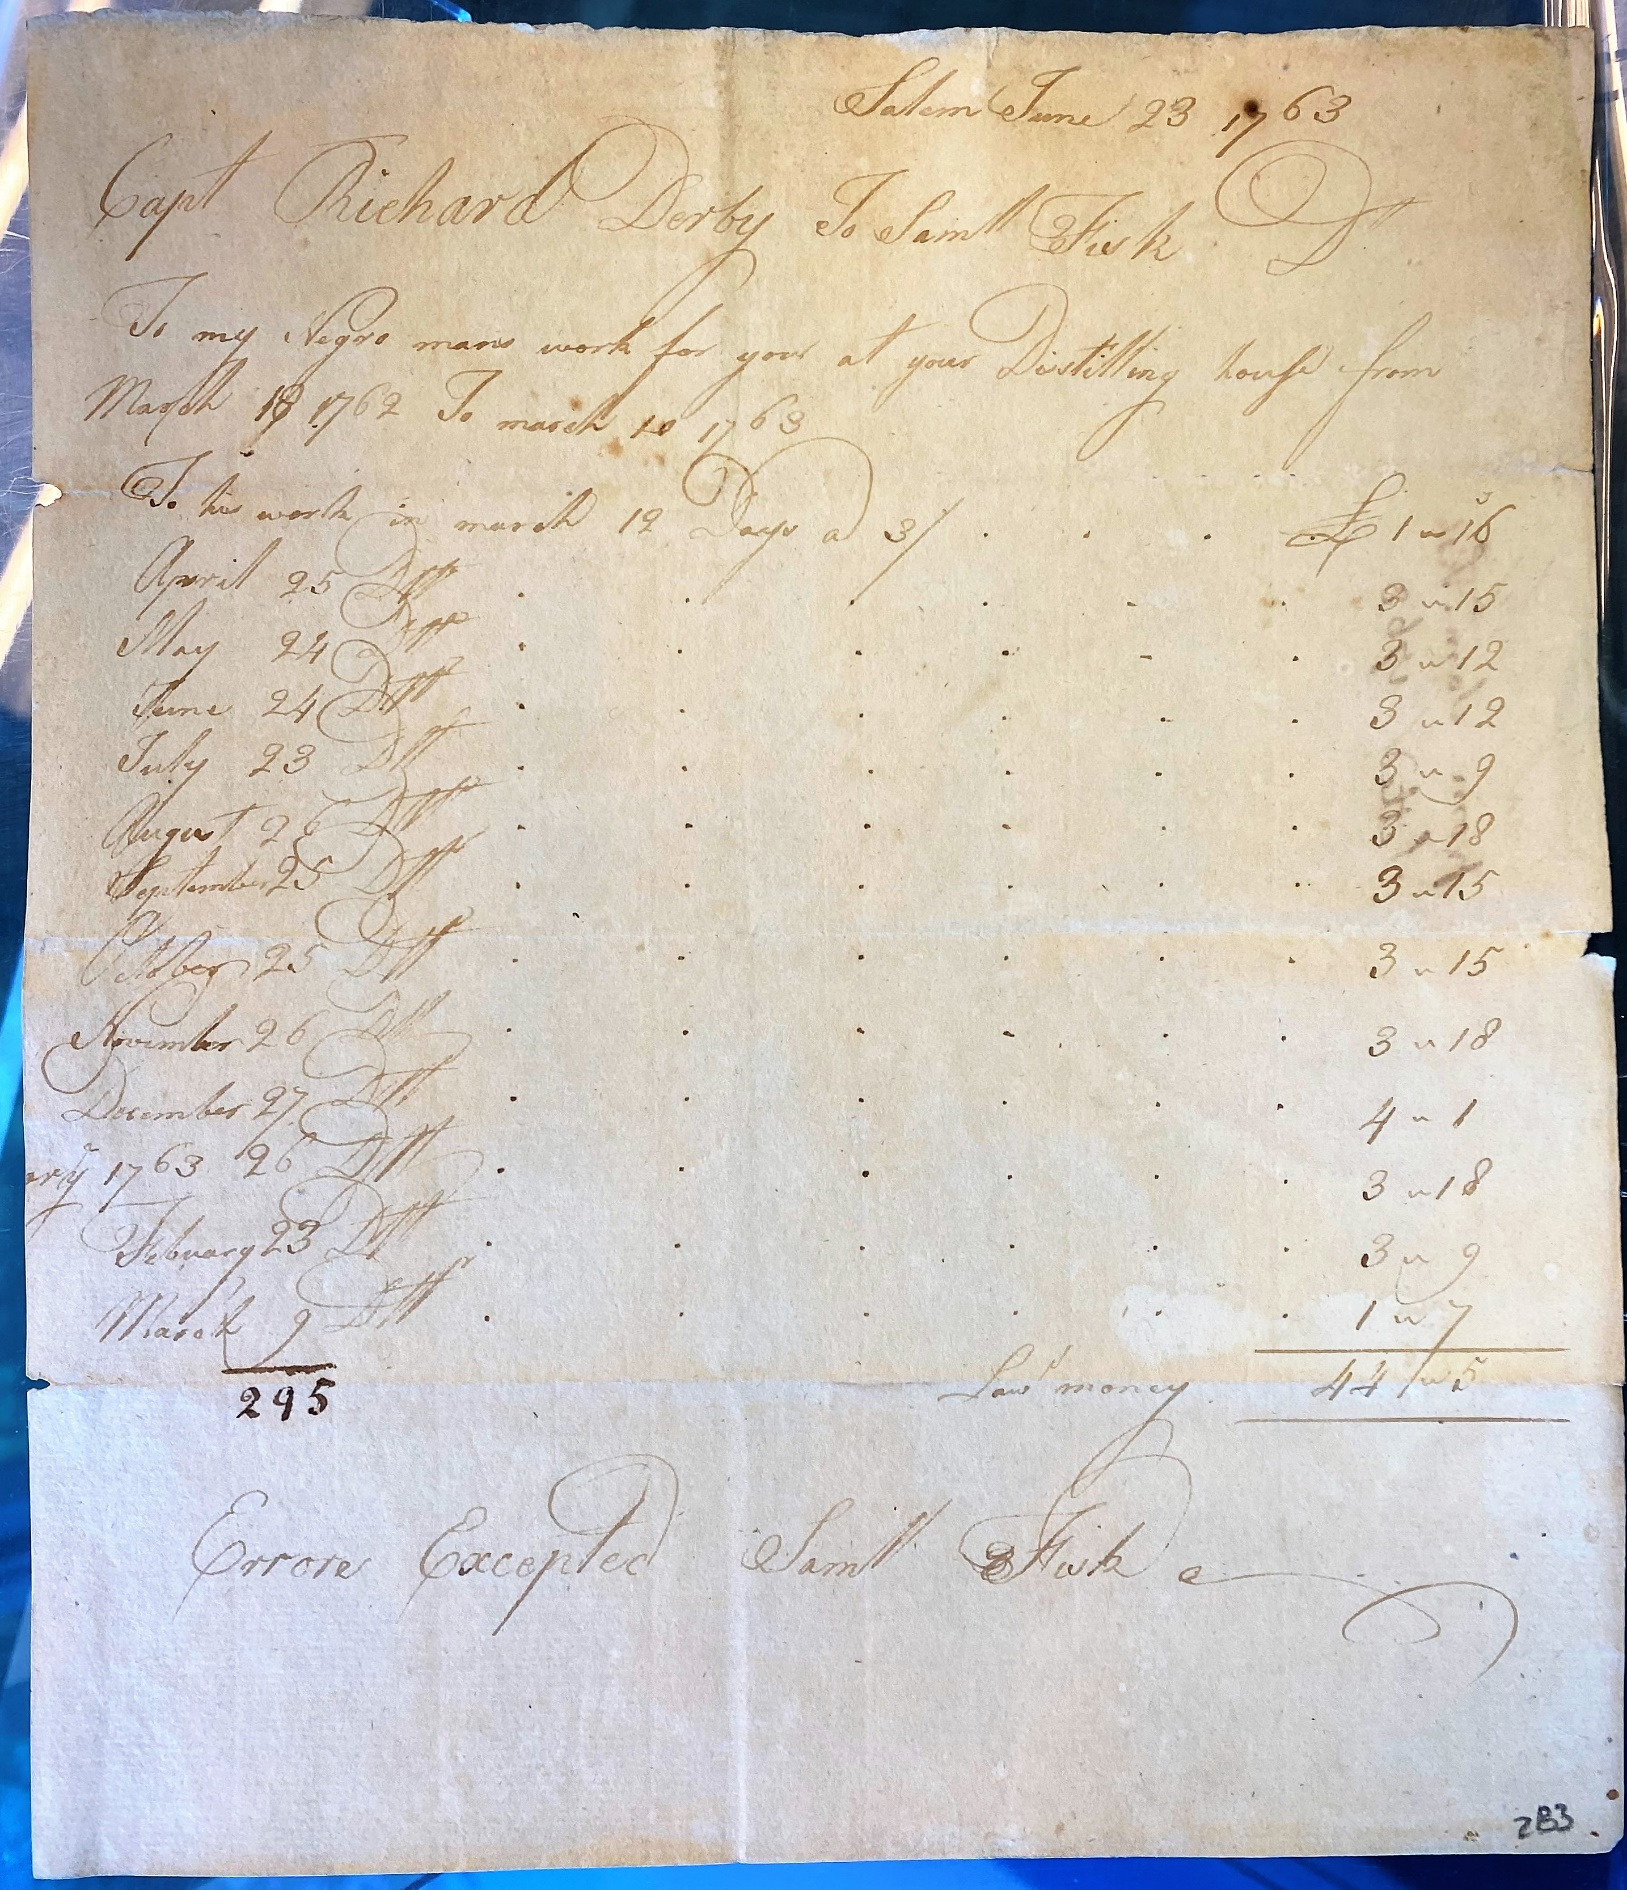 Salem June 23 1763
Capt Richard Derby To Samll Fisk Dr
To my Negro mans work for your at your Distilling house from
March 18 1762 To march 10 1763
To his work in march 12 Days a 3/ . . . £ 1 " 16
April 25 Do . . . . . . 3 " 15
May 24 Do . . . . . . 3 " 12
June 24 Do . . . . . . 3 " 12
July 23 Do . . . . . . 3 " 9
August 26 Do . . . . . . 3 " 18
September 25 Do . . . . . . 3 " 15
October 25 Do . . . . . . 3 " 15
November 26 Do . . . . . . 3 " 18
December 27 Do . . . . . . 4 " 1
ary 1763 26 Do . . . . . . 3 " 18
February 23 Do . . . . . . 3 " 9
March 9 Do . . . . . . 1 " 7
295 Lawl money 44 " 5
Errors Excepted Samll Fisk
283